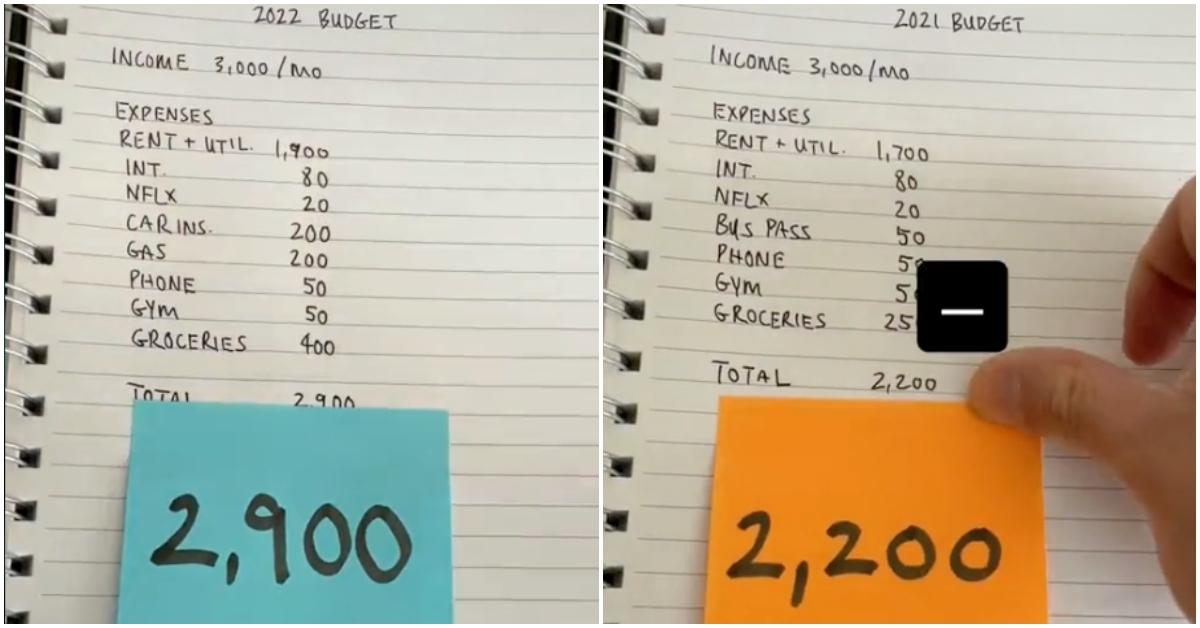 2022 BUDGET
INCOME 3,000/MO
EXPENSES
RENT + UTIL. 1,900
INT. 80
NFLX 20
CAR INS. 200
GAS 200
PHONE 50
GYM 50
GROCERIES 400
TOTAL 2,900
2,900
2021 BUDGET
INCOME 3,000/MO
EXPENSES
RENT + UTIL. 1,700
INT. 80
NFLX 20
BUS PASS 50
PHONE 5
GYM 5
GROCERIES 25
TOTAL 2,200
2,200